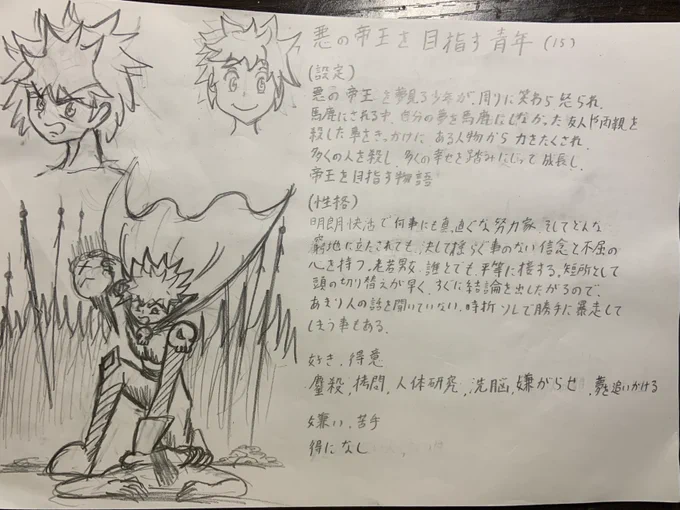 悪の帝王を目指す青年(15)
(設定)
悪の帝王を夢見る少年が、周りに笑われ怒られ、
馬鹿にされるす、自分の夢を馬鹿にしなかった友人や両親を
殺した事をきっかけに ある人物から力をたくされ、
多くの人を殺し 多くの幸せを踏みにじって成長し、
帝王を目指す物語
(性格)
明朗快活で何事にも真っ直ぐな努力家、そしてどんな
窮地に立たされても、決して揺らぐ事のない信念と不屈の
心を持つ、老若男女、誰とでも平等に接する。短所として
頭の切り替えが早く、すぐに結論を出したがるので、
あまり人の話を聞いていない、時折ソレで勝手に暴走して
しまう事もある。
好き、得意
鏖殺、拷問、人体研究、洗脳、嫌がらせ、夢を追いかける
嫌い、苦手
得になし